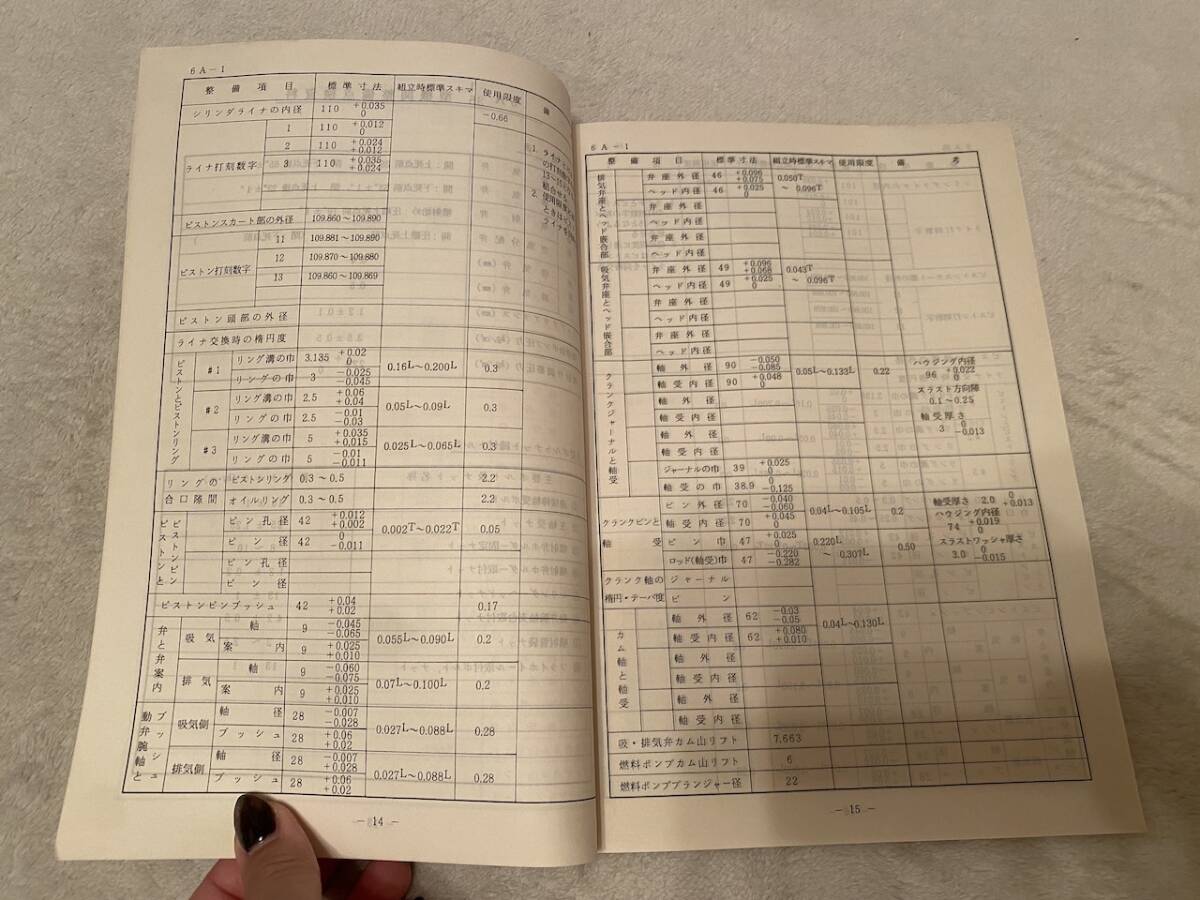 6A-1
整備項目 標準寸法 組立時標準スキマ 使用限度 備
シリンダライナの内径 110 +0.035 0 -0.66
ライナ打刻数字
1 110 +0.012 0
2 110 +0.024 +0.012
3 110 +0.035 +0.024
ピストンスカート部の外径 109.860～109.890
ピストン打刻数字
11 109.881～109.890
12 109.870～109.880
13 109.860～109.869
ピストン頭部の外径
ライナ交換時の楕円度
ピストンとピストンリング
#1 リング溝の巾 3.135 +0.02 0 0.16L～0.200L 0.3
リングの巾 3 -0.025 -0.045
#2 リング溝の巾 2.5 +0.06 +0.04 0.05L～0.09L 0.3
リングの巾 2.5 -0.01 -0.03
#3 リング溝の巾 5 +0.035 +0.015 0.025L～0.065L 0.3
リングの巾 5 -0.01 -0.011
リングの合口隙間
ピストンリング 0.3～0.5 2.2
オイルリング 0.3～0.5 2.2
ピストンピンとピストン
ピン孔径 42 +0.012 +0.002 0.002T～0.022T 0.05
ピン径 42 0 -0.011
ピン孔径
ピン径
ピストンピンブッシュ 42 +0.04 +0.02 0.17
弁と弁案内
吸気 軸 9 -0.045 -0.065 0.055L～0.090L 0.2
案内 9 +0.025 +0.010
排気 軸 9 -0.060 -0.075 0.07L～0.100L 0.2
案内 9 +0.025 +0.010
動弁腕軸とブッシュ
吸気側 軸径 28 -0.007 -0.028 0.027L～0.088L 0.28
ブッシュ 28 +0.06 +0.02
排気側 軸径 28 -0.007 +0.028 0.027L～0.088L 0.28
ブッシュ 28 +0.06 +0.02
-14-
6A-1
整備項目 標準寸法 組立時標準スキマ 使用限度 備考
排気弁座とヘッド嵌合部
弁座外径 46 +0.096 +0.075 0.050T
ヘッド内径 46 +0.025 0 ～0.096T
弁座外径
ヘッド内径
弁座外径
ヘッド内径
吸気弁座とヘッド嵌合部
弁座外径 49 +0.096 +0.068 0.043T
ヘッド内径 49 +0.025 0 ～0.096T
弁座外径
ヘッド内径
弁座外径
ヘッド内径
クランクジャーナルと軸受
軸外径 90 -0.050 -0.085 0.05L～0.133L 0.22
軸受内径 90 +0.048 0
ハウジング内径
96 +0.022 0
スラスト方向隙
0.1～0.25
軸受厚さ
3 0 -0.013
軸外径
軸受内径
軸外径
軸受内径
ジャーナルの巾 39 +0.025 0
軸受の巾 38.9 0 -0.125
クランクピンと軸受
ピン外径 70 -0.040 -0.060 0.04L～0.105L 0.2
軸受内径 70 +0.045 0
ピン巾 47 +0.025 0 0.220L
ロッド(軸受)巾 47 -0.220 -0.282 ～0.307L 0.50
軸受厚さ 2.0 0 +0.013
ハウジング内径
74 +0.019 0
スラストワッシャ厚さ
3.0 0 -0.015
クランク軸の楕円・テーパ度
ジャーナル
ピン
カム軸と軸受
軸外径 62 -0.03 -0.05 0.04L～0.130L
軸受内径 62 +0.080 +0.010
軸外径
軸受内径
軸外径
軸受内径
吸・排気弁カム山リフト 7.663
燃料ポンプカム山リフト 6
燃料ポンププランジャー径 22
-15-